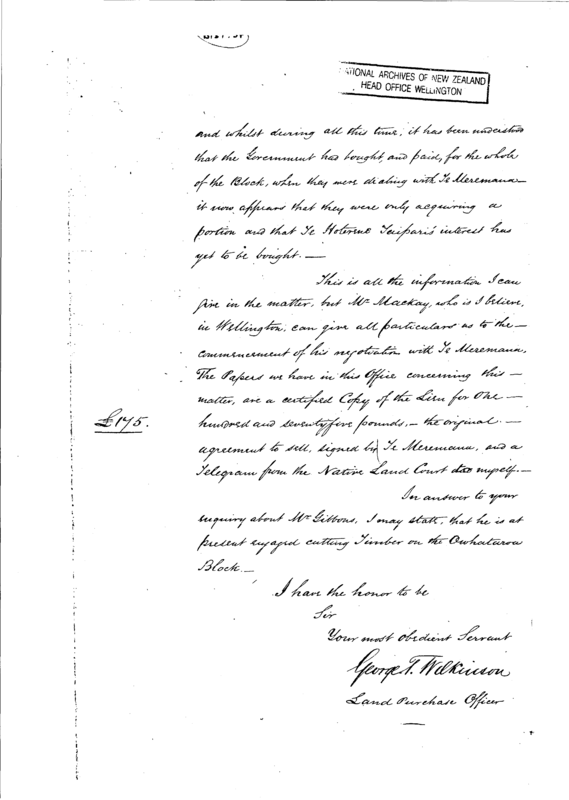 NATIONAL ARCHIVES OF NEW ZEALAND
HEAD OFFICE WELLINGTON
and whilst during all this time, it has been understood
that the Government had bought, and paid, for the whole
of the Block, when they were dealing with Te Meremana —
it now appears that they were only acquiring a
portion and that Te Hotereni Taipari's interest has
yet to be bought. —
This is all the information I can
give in the matter, but Mr Mackay, who is I believe,
in Wellington, can give all particulars as to the —
commencement of his negotiation with Te Meremana.
The Papers we have in this Office concerning this —
matter, are a certified Copy of the Lien for One —
£175.
hundred and seventyfive pounds, — the original —
agreement to sell, signed by Te Meremana, and a
Telegram from the Native Land Court to myself. —
In answer to your
enquiry about Mr Gibbons, I may state, that he is at
present engaged cutting Timber on the Owhataroa
Block. —
I have the honor to be
Sir
Your most obedient Servant
George T. Wilkinson
Land Purchase Officer